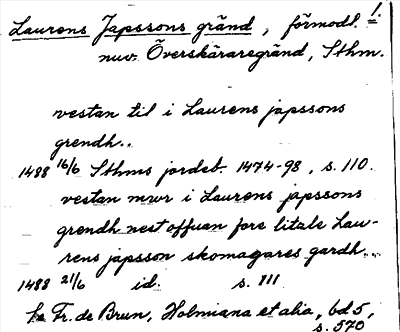 Laurens Japssons gränd, förmodl. =
nuv. Överskäraregränd, Sthm.
vestan til i Laurens japssons
grendh..
1488 16/6 Sthms jordeb. 1474-98, s. 110.
vestan mwr i Laurens japssons
grendh nest offuan fore litale Lau-
rens japsson skomagares gardh...
1488 21/6 id. s. 111
Fr. de Brun, Holmiana et alia, bd 5,
s. 570